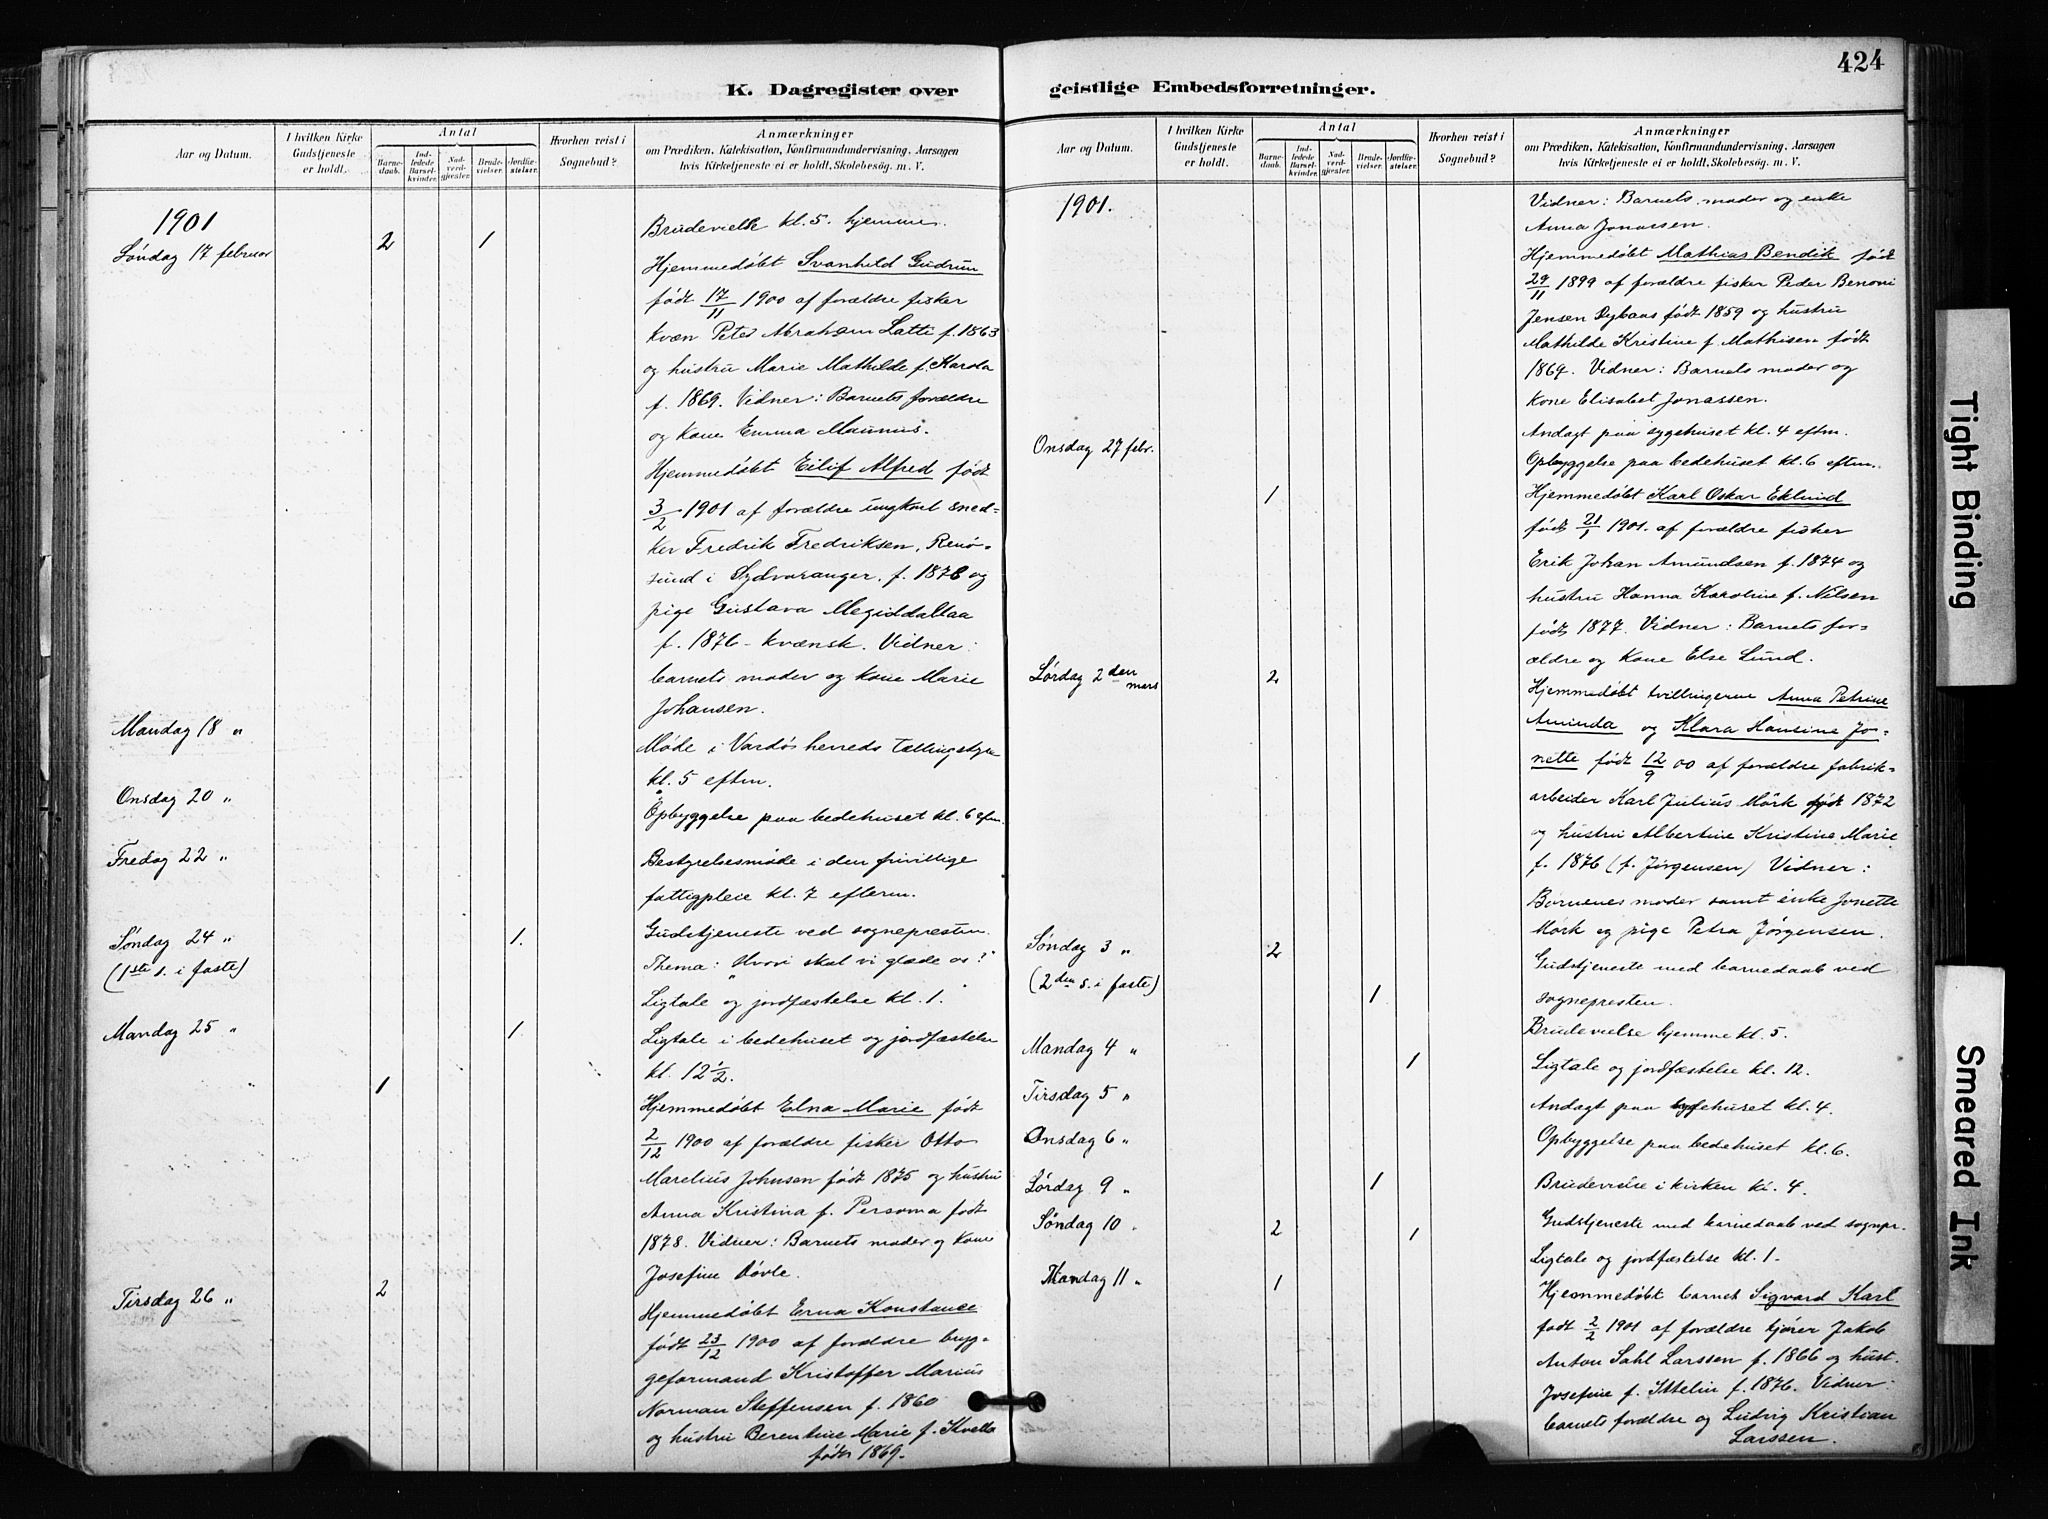 K. Dagregister over
Aar og Datum.
I hvilken Kirke Gudstjeneste er holdt.
Antal
Barne-daab.
Ind-ledede Barsel-kvinder.
Nad-verd-gjester.
Brude-vielser.
Jordfæ-stelser.
Hvorhen reist i Sognebud?
Anmærkninger
om Prædiken, Katekisation, Konfirmandundervisning, Aarsagen
hvis Kirketjeneste ei er holdt, Skolebesøg, m. V.
1901
Søndag 17 februar 2 1 Brudevielse kl. 5. hjemme.
Hjemmedøbt Svanhild Gudrun
født 17/11 1900 af forældre fisker
kvæn Peter Abraham Latti f. 1863
og hustru Marie Mathilde f. Karola
f. 1869. Vidner: Barnets forældre
og Kone Emma Maunus.
Hjemmedøbt Eilif Alfred født
3/2 1901 af forældre ungkarl sned-
ker Fredrik Fredriksen, Renø-
sund i Sydvaranger, f. 1878 og
pige Gustava
f. 1876 - kvænsk. Vidner:
barnets moder og kone Marie
Johansen.
Mandag 18 " Møde i Vardø herreds tællingsstyre
kl. 5 eftm.
Onsdag 20 " Opbyggelse paa bedehuset kl. 6 eftm.
Fredag 22 " Bestyrelsesmøde i den frivillige
fattigpleie kl. 7 efterm.
Søndag 24 " 1. Gudstjeneste ved sognepresten.
(1ste s. i faste) Thema: "Hvori skal vi glæde os?"
Ligtale og jordfæstelse kl. 1.
Mandag 25 " 1. Ligtale i bedehuset og jordfæstelse
kl. 12 1/2.
1 Hjemmedøbt Elna Marie født
2/12 1900 af forældre fisker Otto
Marelius Johnsen født 1875 og hustru
Anna Kristina f. Persoma født
1878. Vidner: Barnets moder og Kone
Josefine Døvle.
Tirsdag 26 " 2 Hjemmedøbt Erna Konstance
født 23/12 1900 af forældre bryg-
geformand Kristoffer Marius
Norman Steffensen f. 1860
og hustru Berentine Marie f. Kvella
født 1869.
424
geistlige Embedsforretninger.
Aar og Datum.
I hvilken Kirke Gudstjeneste er holdt.
Antal
Barne-daab.
Ind-ledede Barsel-kvinder.
Nad-verd-gjester.
Brude-vielser.
Jordfæ-stelser.
Hvorhen reist i Sognebud?
Anmærkninger
om Prædiken, Katekisation, Konfirmandundervisning, Aarsagen
hvis Kirketjeneste ei er holdt, Skolebesøg, m. V.
1901.
Vidner: Barnets moder og enke
Anna Jonassen.
Hjemmedøbt Mathias Bendik født
29/11 1899 af forældre fisker Peder Benoni
Jensen født 1859 og hustru
Mathilde Kristine f. Mathisen født
1869. Vidner: Barnets moder og
Kone Elisabet Jonassen.
Onsdag 27 febr. Andagt paa sygehuset kl. 4 eftm.
Opbyggelse paa bedehuset kl. 6 eftm.
1 Hjemmedøbt Karl Oskar Eklund
født 21/1 1901. af forældre fisker
Erik Johan Amundsen f. 1874 og
hustru Hanna Karoline f. Nilsen
født 1877. Vidner: Barnets for-
ældre og Kone Else Lund.
Lørdag 2den mars 2 Hjemmedøbt tvillingerne Anna Petrine
Aminda og Klara Hansine Jo-
nette født 12/9 00 af forældre fabrik-
arbeider Karl Julius Mörk født 1872
og hustru Albertine Kristine Marie
f. 1876 (f. Jørgensen) Vidner:
Børnenes moder samt enke Jonette
Mørk og pige Petra Jørgensen.
Søndag 3 " 2 Gudstjeneste med barnedaab ved
(2den s. i faste) sognepresten.
1 Brudevielse hjemme kl. 5.
Mandag 4 " 1 Ligtale og jordfæstelse kl. 12.
Tirsdag 5 " Andagt paa sygehuset kl. 4.
Onsdag 6 " Opbyggelse paa bedehuset kl. 6.
Lørdag 9 " 1 Brudevielse i kirken kl. 4.
Søndag 10 " 2 1 Gudstjeneste med barnedaab ved sognepr.
Ligtale og jordfæstelse kl. 1.
Mandag 11 " 1 Hjemmedøbt barnet Sigvard Karl
født 2/2 1901 af forældre kjører Jakob
Anton Dahl Larssen f. 1866 og hust.
Josefine f. Ittelin f. 1876. Vidner:
barnets forældre og Ludvig Kristian
Larssen.
Tight Binding
Smeared Ink